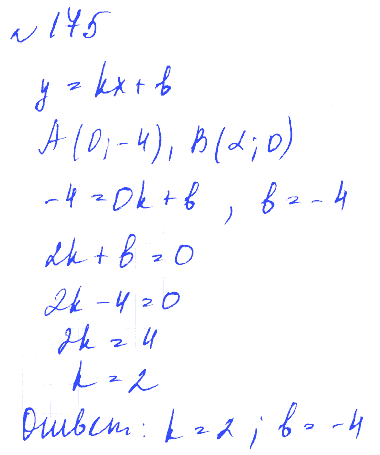 № 175
y = kx + b
A(0; -4), B(2; 0)
-4 = 0k + b, b = -4
2k + b = 0
2k - 4 = 0
2k = 4
k = 2
Ответ: k = 2; b = -4